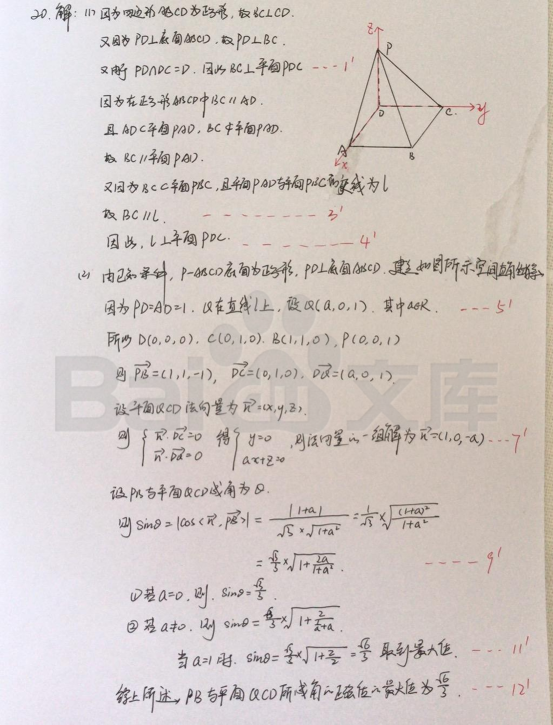 20. 解: (1) 因为四边形ABCD为正方形, 故BC⊥CD.
又因为PD⊥底面ABCD, 故PD⊥BC.
又由于PD∩DC=D. 因此BC⊥平面PDC ---1'
因为在正方形ABCD中BC∥AD.
且AD⊂平面PAD, BC⊄平面PAD.
故BC∥平面PAD.
又因为BC⊂平面PBC, 且平面PAD与平面PBC的交线为l
故BC∥l. ------- 3'
因此, l⊥平面PDC. ------ 4'
z
P
D
C
y
A
x
B
(2) 由已知条件, P-ABCD底面为正方形, PD⊥底面ABCD. 建立如图所示空间直角坐标系
因为PD=AD=1. Q在直线l上, 设Q(a,0,1). 其中a∈R. ---5'
所以D(0,0,0). C(0,1,0). B(1,1,0), P(0,0,1)
则 PB=(1,1,-1), DC=(0,1,0). DQ=(a,0,1).
Bai 文库
设平面QCD法向量为n=(x,y,z).
则 { n·DC=0 n·DQ=0 得 { y=0 ax+z=0 , 则法向量的一组解为n=(1,0,-a) ---7'
设PB与平面QCD成角为θ.
则 sinθ=|cos<n,PB>|= |1+a| / √3×√1+a² = 1/√3 × √(1+a)²/1+a²
= √3/3 × √1+2a/1+a² . ----9'
①若a=0, 则. sinθ=√3/3.
②若a≠0, 则 sinθ=√3/3×√1+2/
当a=1时. sinθ= ×√1+2/2 =√6/3 取到最大值. ---11'
综上所述, PB与平面QCD所成角的正弦值的最大值为√6/3. ---12'